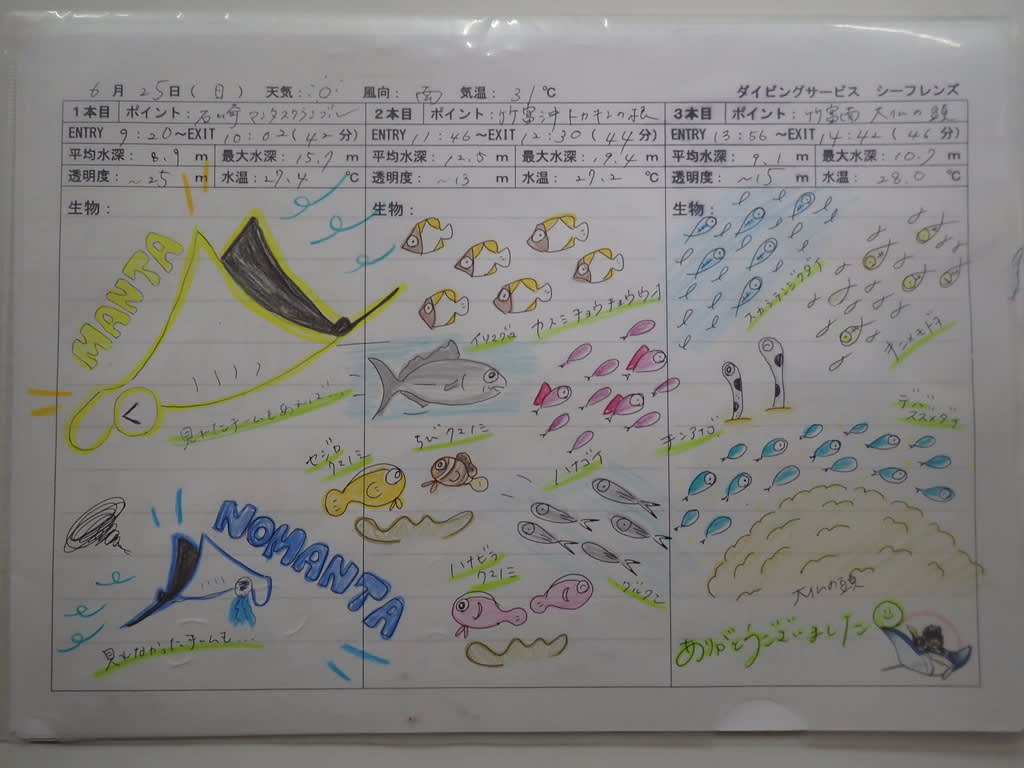 6月25日(日) 天気: 風向:南 気温:31℃ ダイビングサービス シーフレンズ
1本目 ポイント:石崎 マンタスクランブル
ENTRY 9:20~EXIT 10:02(42分)
平均水深:8.9 m 最大水深:15.7 m
透明度:~25 m 水温:27.4 ℃
生物:
MANTA
見れたチームもあれば...
NOMANTA
見れなかったチームも...
2本目 ポイント:竹富沖 トカキンの根
ENTRY 11:46~EXIT 12:30(44分)
平均水深:12.5 m 最大水深:19.4 m
透明度:~13 m 水温:27.2 ℃
生物:
カスミチョウチョウウオ
イソマグロ
セジロ
クマノミ
ちびクマノミ
ハナゴイ
ハナビラ
クマノミ
グルクン
3本目 ポイント:竹富南 大仏の頭
ENTRY 13:56~EXIT 14:42(46分)
平均水深:9.1 m 最大水深:10.7 m
透明度:~15 m 水温:28.0 ℃
生物:
スカシテンジクダイ
キンメモドキ
チンアナゴ
デバ
スズメダイ
大仏の頭
ありがとうございました